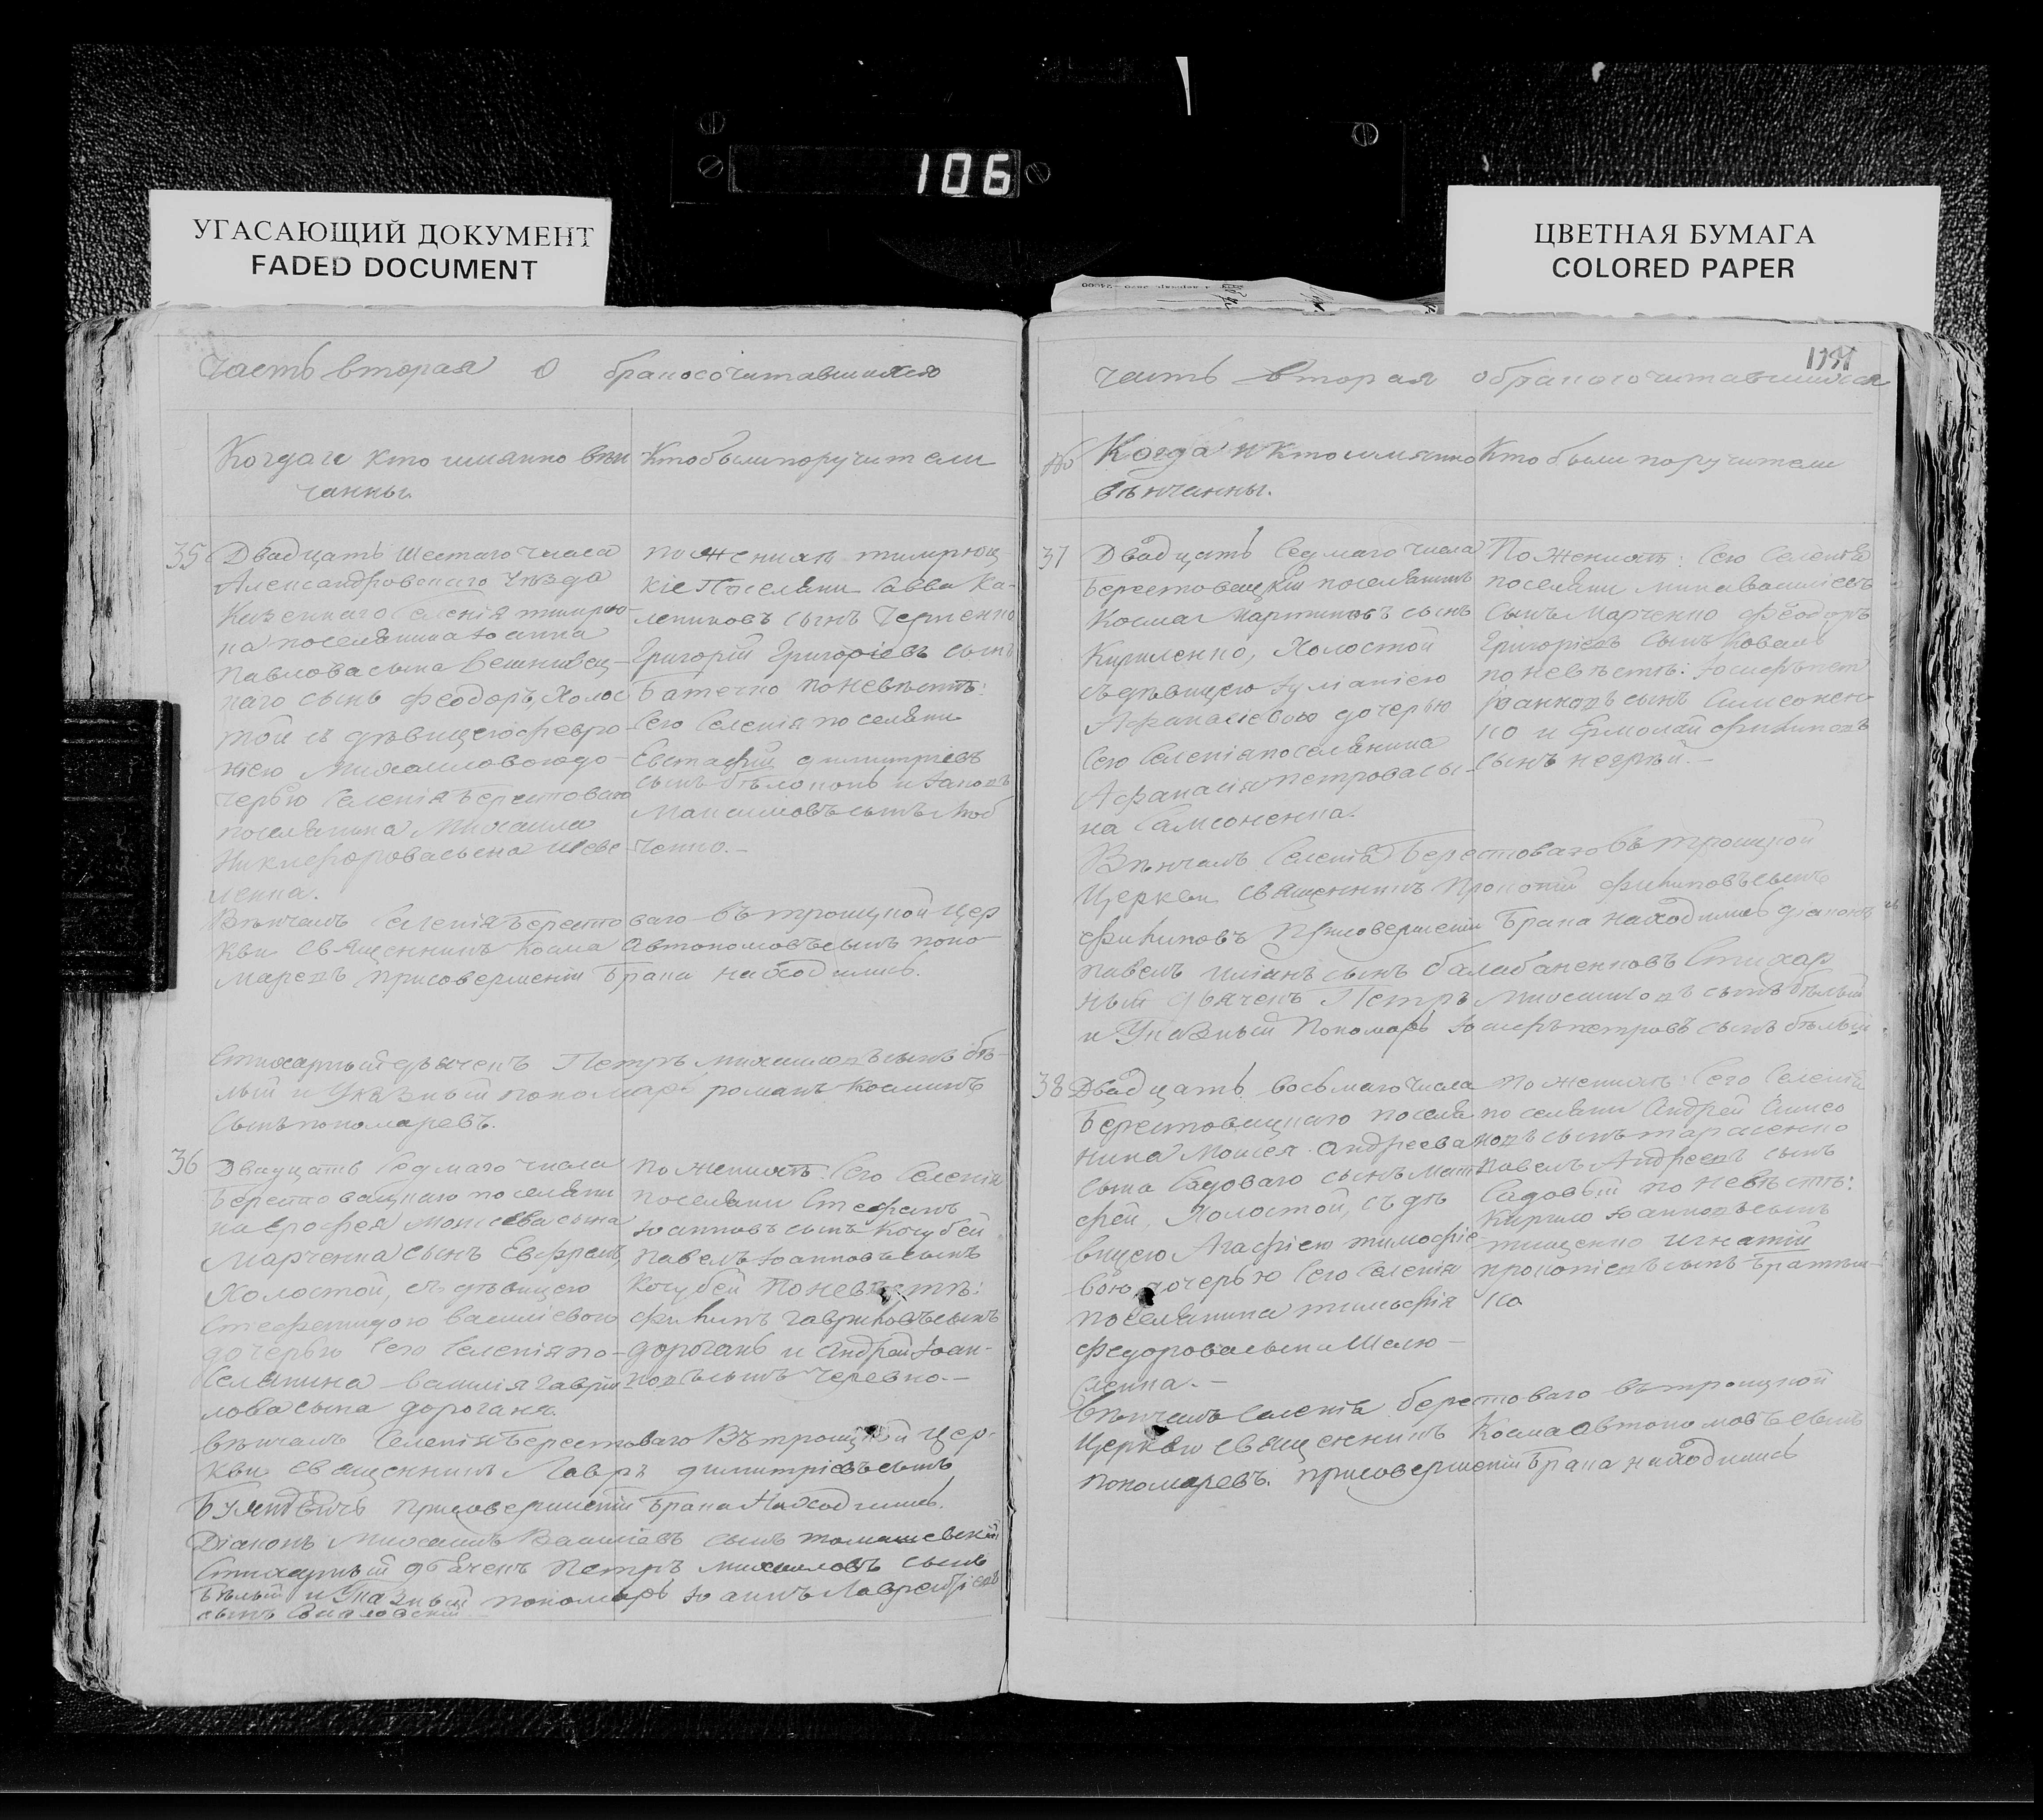 106
УГАСАЮЩИЙ ДОКУМЕНТ
FADED DOCUMENT
ЦВЕТНАЯ БУМАГА
COLORED PAPER
Часть вторая о бракосочитавшихся
Когда и кто имянно вѣн
чанны.
Кто были поручители
35 Двадцать шестаго числа
Александровскаго уѣзда
Казеннаго Селенія
на поселянина Іоанна
Павлова сына
наго сынъ Феодоръ, Холос
той съ дѣвицею Февро-
ніею Михаиловою до-
черью Селенія Берестоваго
поселянина Михаила
Никифорова сына Шев-
ченка.
по женихѣ
кіе Поселяни Савва Ка-
лениковъ сынъ
Григорій Григоріевъ сынъ
Батечко по невѣстѣ:
Сего Селенія поселяни
Евстафій Димитріевъ
сынъ Бѣлоконь и Іаковъ
Максимовъ сынъ
ченко.-
Вѣнчалъ Селенія Берестоваго въ троицкой цер
кви священникъ Косма Автономовъ сынъ поно-
маревъ при совершеніи брака находились.
Стихарный дьячекъ Петръ Михаиловъ сынъ бѣ-
лый и Указный пономарь романъ Косминъ
сынъ пономаревъ.
36 Двадцать Седмаго числа
Берестовацкаго поселяни
на Ерофея Моисѣева сына
Марченка сынъ Ефремъ,
Холостой, съ дѣвицею
Стефанидою Василіевою
дочерью Сего Селенія по-
Селянина Василія Гаври
лова сына дороганя.
по женихѣ: Сего Селенія
поселяни Стефанъ
Іоанновъ сынъ Кочубей
Павелъ Іоанновъ сынъ
Кочубей по невѣстѣ:
Филипъ Гавриловъ сынъ
дорогань и Андрей Іоан-
новъ сынъ Черевко.-
вѣнчалъ Селенія Берестоваго въ троицкой цер-
кви священникъ Лавръ Димитріевъ сынъ
при совершеніи брака находились.
Діаконъ Михаилъ Василіевъ сынъ томашевскій
Стихарный дьячекъ Петръ Михаиловъ сынъ
Бѣлый и Указный пономарь Іоаннъ Лаврентіевъ
сынъ
Часть вторая о бракосочитавшихся
№ Когда и кто имянно
вѣнчанны.
Кто были поручители
37 Двадцать Седмаго числа
Берестовацкій поселянинъ
Косма Мартиновъ сынъ
Кириленко, Холостой
съ дѣвицею Іуліаніею
Афанасіевою дочерью
Сего Селенія поселянина
Афанасія Петрова сы-
на Самсоненка.
По женихѣ: Сего Селенія
поселяни Мина Василіевъ
сынъ Марченко Феодоръ
Григоріевъ сынъ Коваль
по невѣстѣ: Іосифъ
Іоанновъ сынъ Самсонен-
ко и Ермолай Филиповъ
сынъ негрѣй.-
Вѣнчалъ Селенія Берестоваго въ троицкой
Церкви священникъ Прокопій Филиповъ сынъ
Филиповъ При совершеніи брака находились діаконъ
павелъ сынъ балабаненковъ Стихар
ный дьячекъ Петръ Михаиловъ сынъ бѣлый
и Указный Пономарь Іосифъ петровъ сынъ бѣлый.
38 Двадцать восьмаго числа
Берестовацкаго поселя
нина Моисея Андреева
сына Садоваго сынъ Мат
фей, Холостой, съ дѣ
вицею Агафіею тимофіе
вою дочерью Сего Селенія
поселянина тимофія
Федорова сына Шелю-
По женихѣ: Сего Селенія
поселяни Андрей Симео
новъ сынъ тарасенко
Павелъ Андреевъ сынъ
Садовый по невѣстѣ:
Кирило Іоанновъ сынъ
тищенко игнатій
прокопіевъ сынъ
ко
Вѣнчалъ Селенія берестоваго въ троицкой
Церкви священникъ Косма Автономовъ сынъ
пономаревъ. при совершеніи брака находились